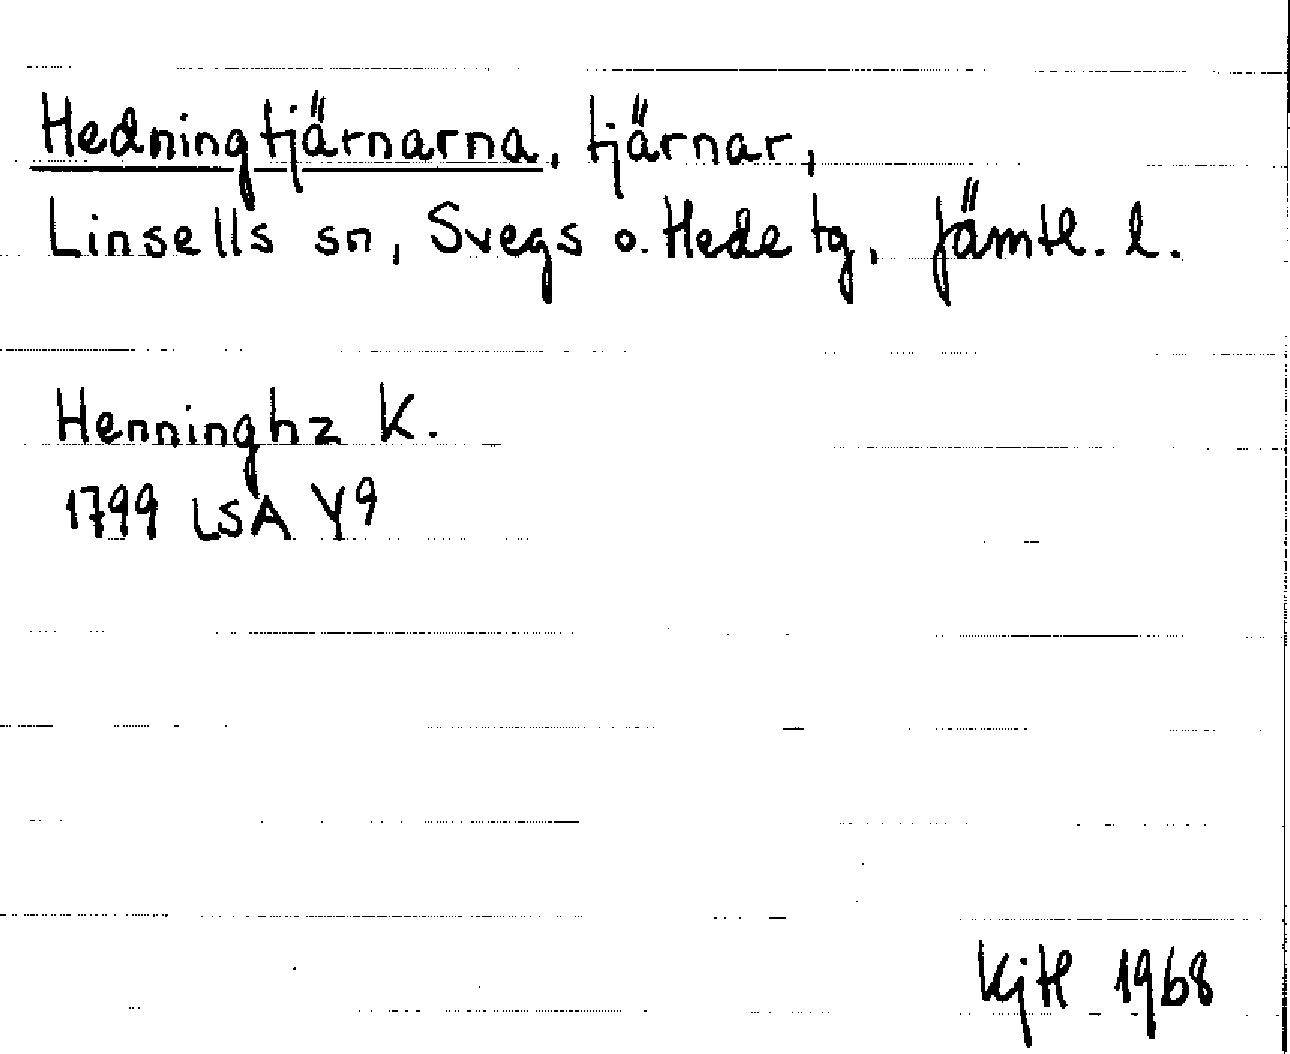 Hedningtjärnarna, tjärnar,
Linsells sn, Svegs o. Hede tg, Jämtl. l.
Henninghz K.
1799 LSA Y9
KjH 1968